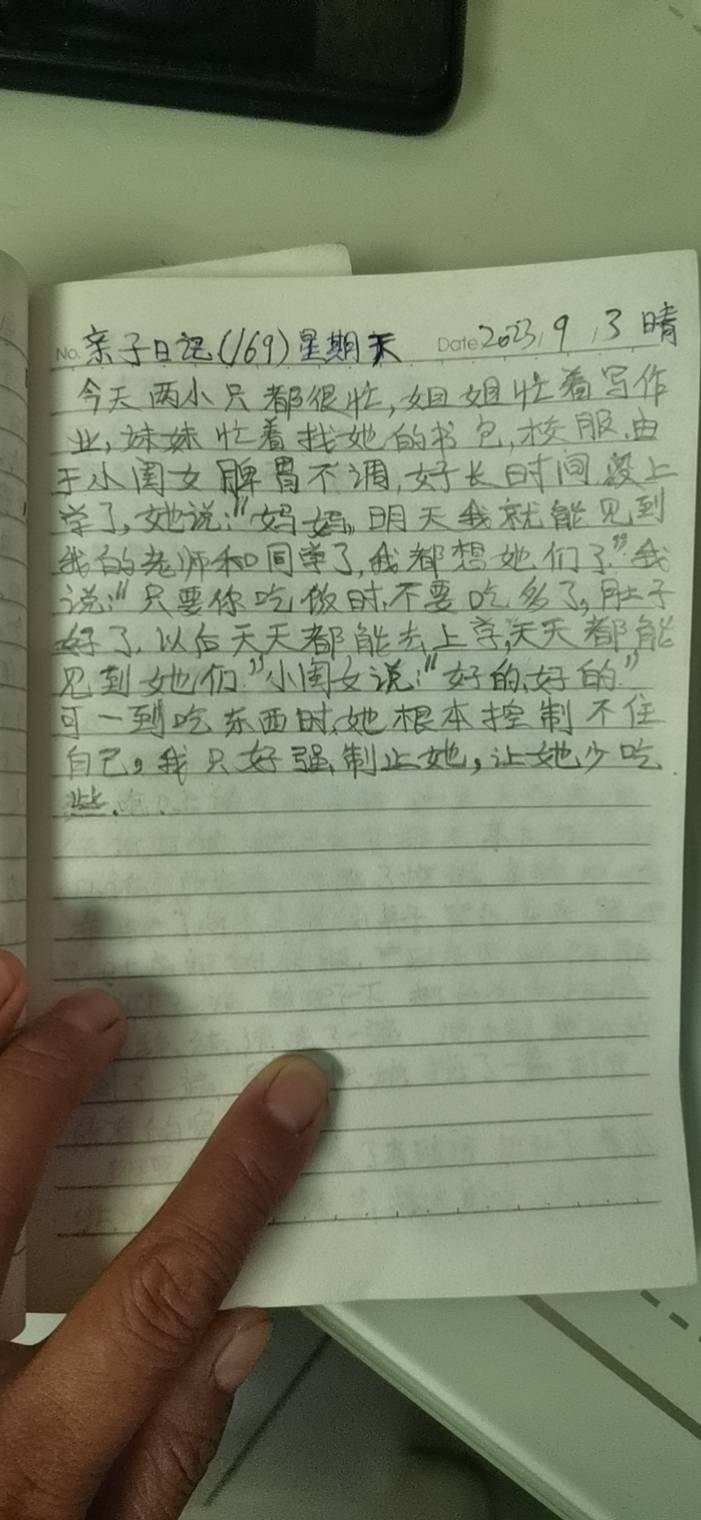 No. 亲子日记(169)星期天 Date 2023.9.3 晴
今天两小只都很忙,姐姐忙着写作
业,妹妹忙着找她的书包,校服.由
于小闺女脾胃不调,好长时间没上
学了,她说:"妈妈,明天我就能见到
我的老师和同学了,我都想她们了."我
说:"只要你吃饭时,不要吃多了,肚子
好了.以后天天都能去上学,天天都能
见到她们."小闺女说:"好的,好的."
可一到吃东西时,她根本控制不住
自己。我只好强制止她,让她少吃
些.